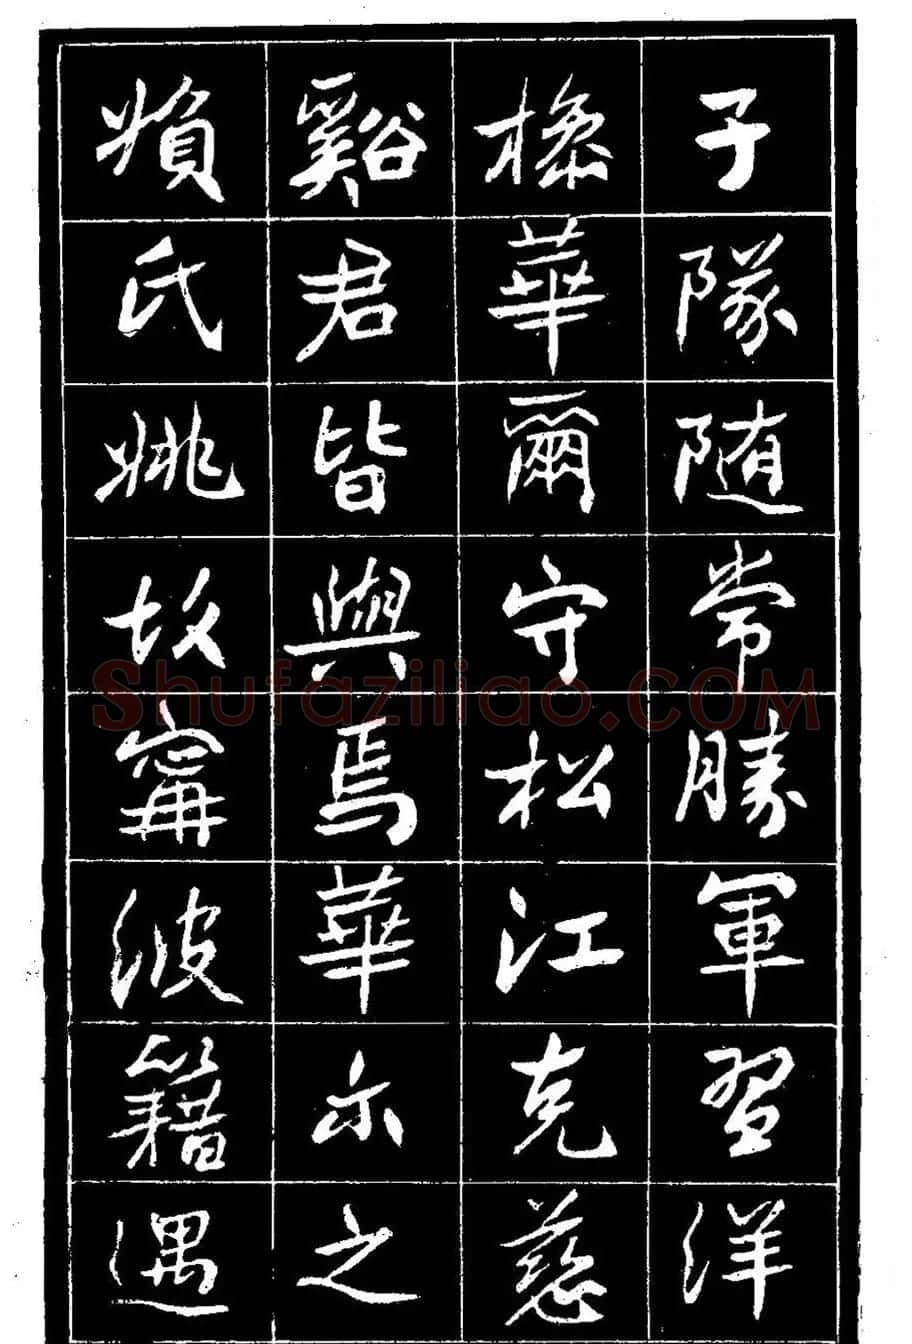 子隊随常勝軍習洋
槍華爾守松江克慈
谿君皆與焉華尒之
媍氏姚故寧波籍遇
Shufaziliao.COM